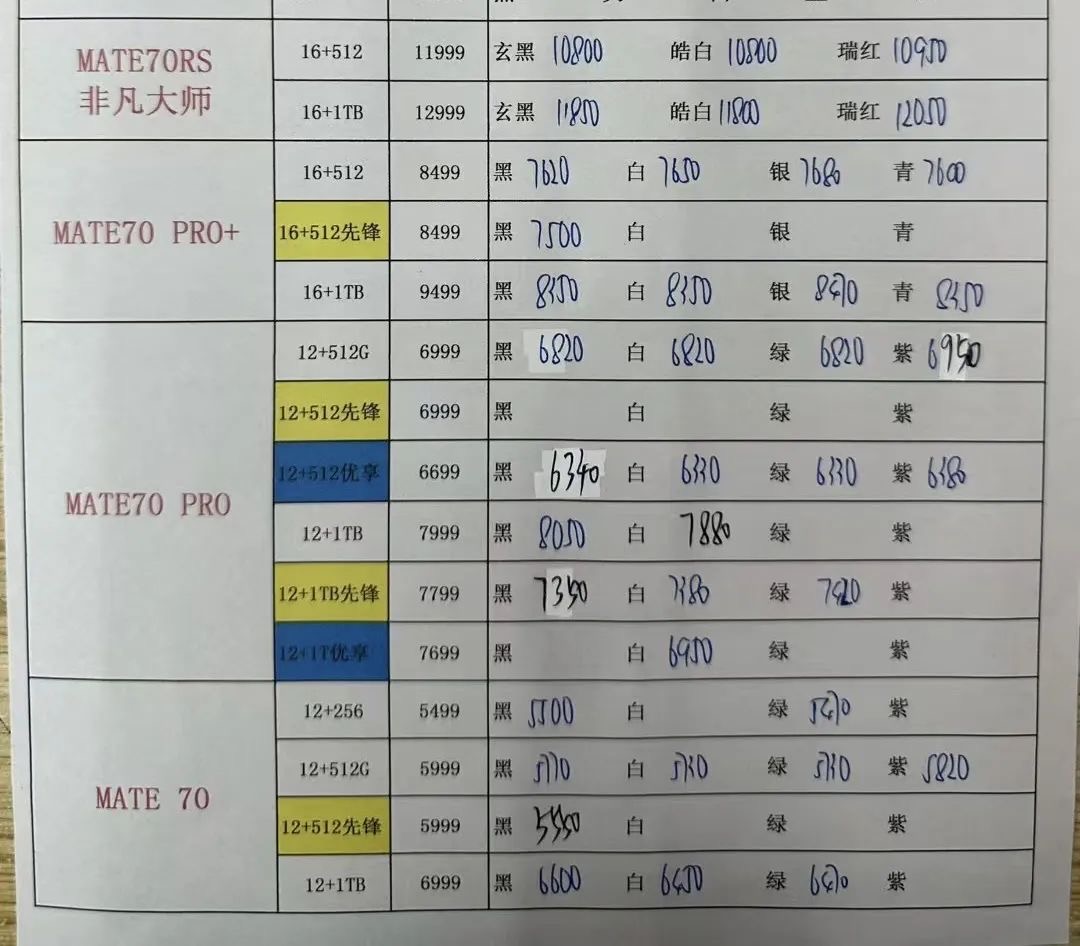 MATE70RS
非凡大师
16+512 11999 玄黑 10800 皓白 10800 瑞红 10950
16+1TB 12999 玄黑 11850 皓白 11800 瑞红 12050
MATE70 PRO+
16+512 8499 黑 7620 白 7650 银 7680 青 7600
16+512先锋 8499 黑 7500 白 银 青
16+1TB 9499 黑 8350 白 8350 银 青
MATE70 PRO
12+512G 6999 黑 6820 白 6820 绿 6820 紫 6950
12+512先锋 6999 黑 白 绿 紫
12+512优享 6699 黑 6340 白 6330 绿 6330 紫 6380
12+1TB 7999 黑 8050 白 7880 绿 紫
12+1TB先锋 7799 黑 7350 白 7380 绿 紫
12+1T优享 7699 黑 白 6950 绿 紫
MATE 70
12+256 5499 黑 5500 白 绿 紫
12+512G 5999 黑 白 绿 紫 5820
12+512先锋 5999 黑 5550 白 绿 紫
12+1TB 6999 黑 6600 白 6450 绿 紫